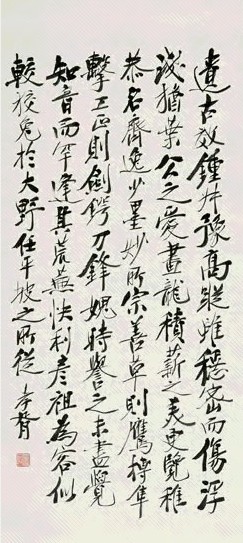 遺古效鍾井豫高蹤雖穩密而傷浮
淺猶葉公之愛畫龍積薪之美更覽稚
恭名齊逸少墨妙所宗善草則鷹搏隼
擊工正則劍鍔刀鋒愧時譽之未盡覺
知音而罕逢其荒蕪快利彥祖為容似
較狡兔於大野任平坡之所從